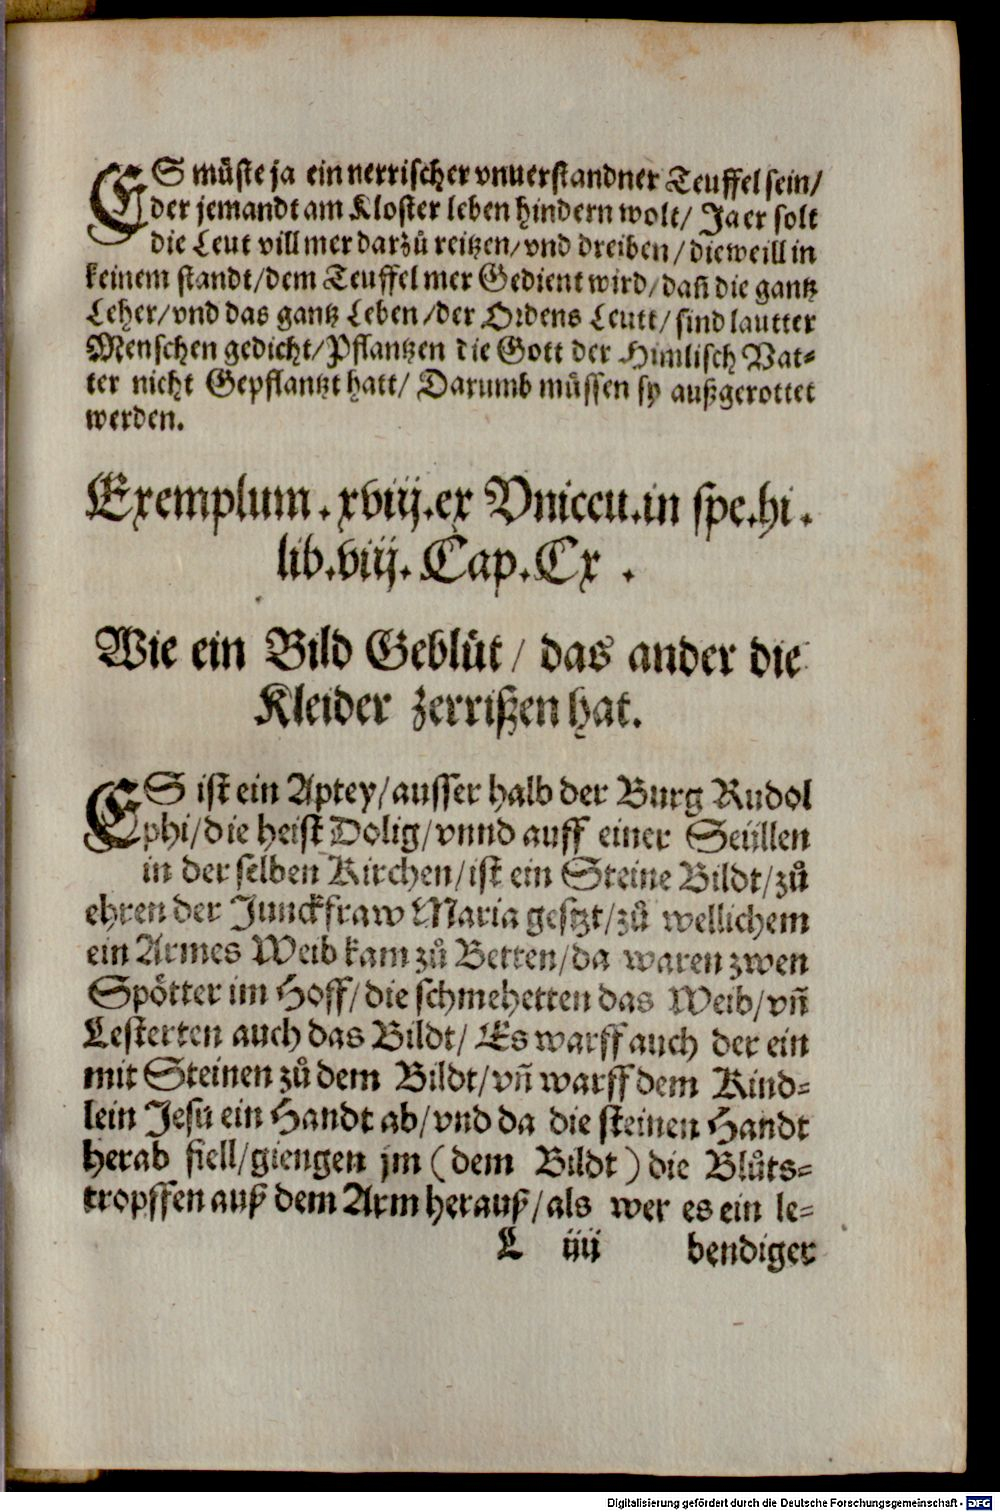 ES müste ja ein nerrischer vnuerstandner Teuffel sein/
der jemandt am Kloster leben hindern wolt/ Ja er solt
die Leut vill mer darzů reitzen/ vnd dreiben/ dieweill in
keinem standt/ dem Teuffel mer Gedient wird/ dañ die gantz
Leher/ vnd das gantz Leben/ der Ordens Leutt/ sind lautter
Menschen gedicht/ Pflantzen die Gott der Himlisch Vat⸗
ter nicht Gepflantzt hatt/ Darumb müssen sy außgerottet
werden.
Exemplum. xviij. ex Vniccu. in spe. hi.
lib. viij. Cap. Cx .
Wie ein Bild Geblůt/ das ander die
Kleider zerrißzen hat.
ES ist ein Aptey/ ausser halb der Burg Rudol
phi/ die heist Dolig/ vnnd auff einer Seüllen
in der selben Kirchen/ ist ein Steine Bildt/ zů
ehren der Junckfraw Maria gesetzt/ zů wellichem
ein Armes Weib kam zů Betten/ da waren zwen
Spötter im Hoff/ die schmehetten das Weib/ vñ
Lesterten auch das Bildt/ Es warff auch der ein
mit Steinen zů dem Bildt/ vñ warff dem Kind⸗
lein Jesu ein Handt ab/ vnd da die steinen Handt
herab fiell/ giengen jm (dem Bildt) die Blůts⸗
tropffen auß dem Arm herauß/ als wer es ein le⸗
L iiij bendiger
Digitalisierung gefördert durch die Deutsche Forschungsgemeinschaft - DFG